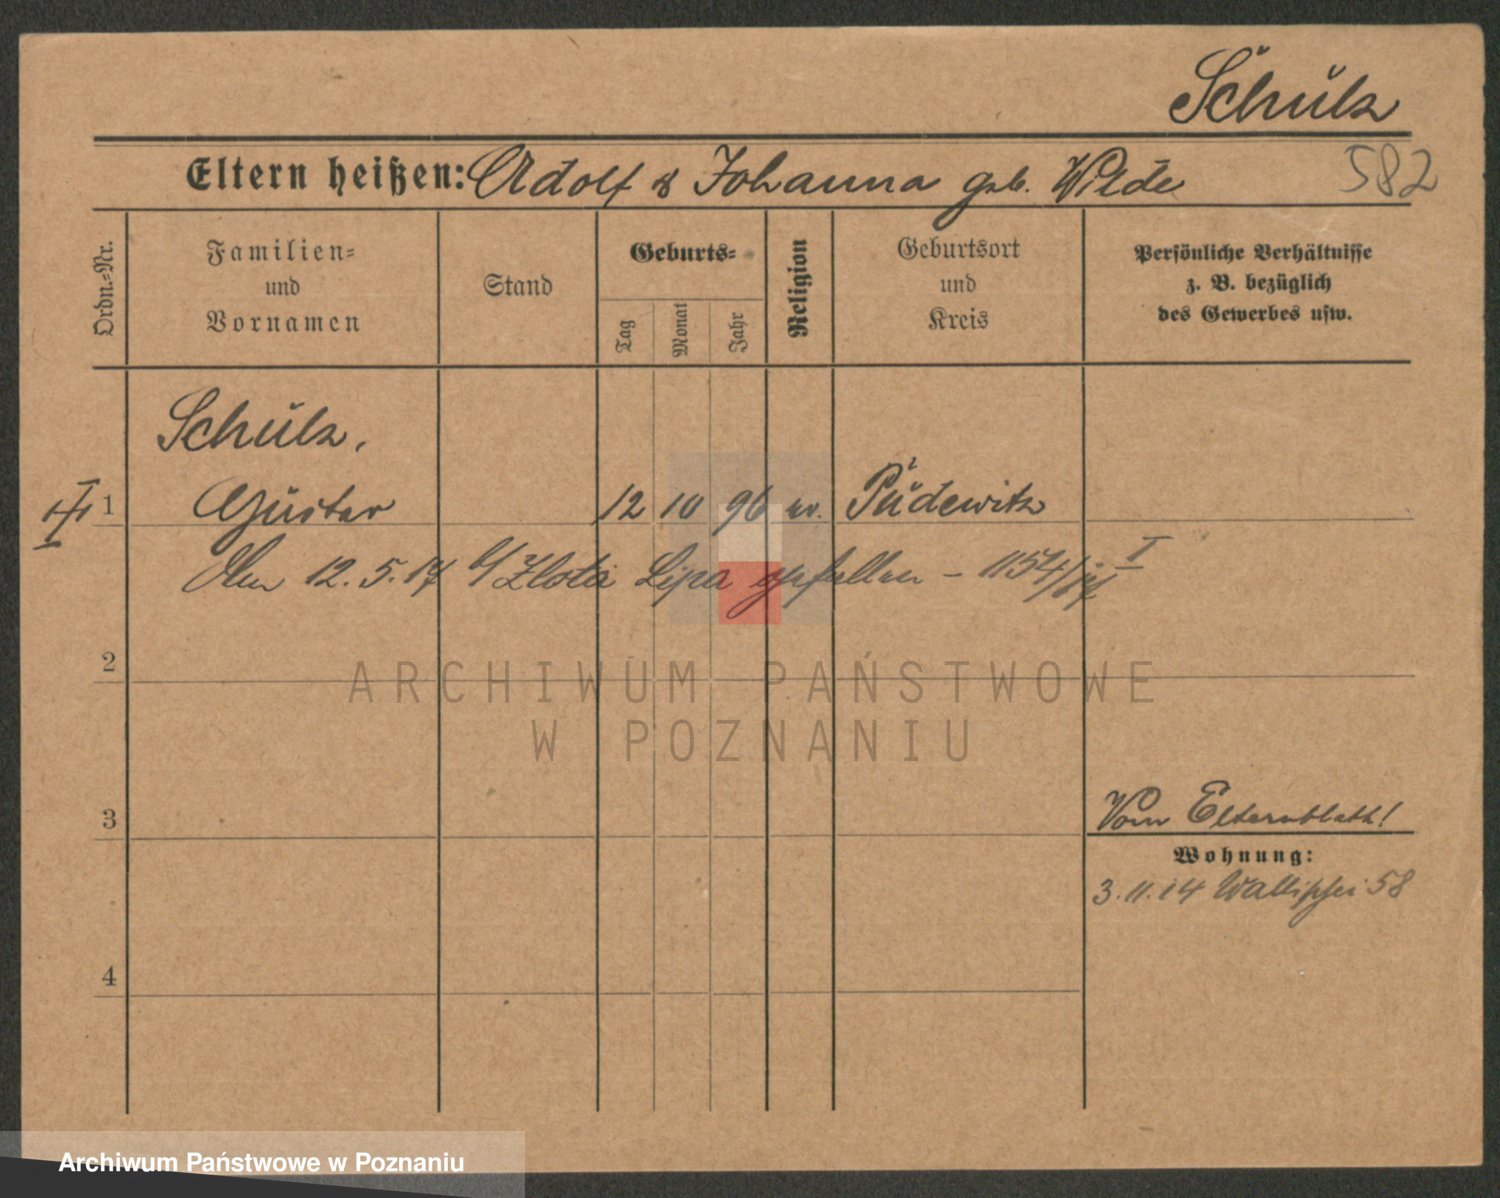 Schulz
Eltern heißen: Adolf & Johanna geb. Wilde
582
Ordn.=Nr.
Familien=
und
Vornamen
Stand
Geburts=
Tag
Monat
Jahr
Religion
Geburtsort
und
Kreis
Persönliche Verhältnisse
z. B. bezüglich
des Gewerbes usw.
Schulz,
1 Gustav 12 10 96 ev. Pudewitz
Am 12.5.17 b/ Zlota Lipa gefallen – 1154/17 I
2
ARCHIWUM PAŃSTWOWE
W POZNANIU
3
Vom Elternblatt!
Wohnung:
3.11.14 Wallischei 58
4
Archiwum Państwowe w Poznaniu